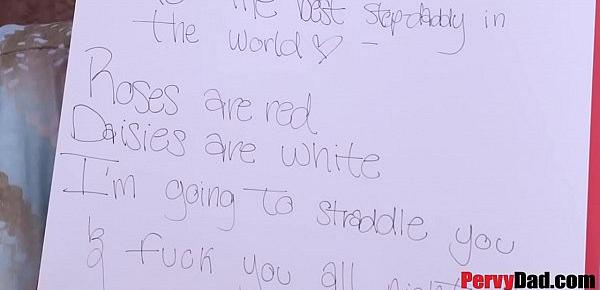 the best stepdaddy in
the world ♡ –
Roses are red
Daisies are white
I'm going to straddle you
& fuck you all night
PervyDad.com